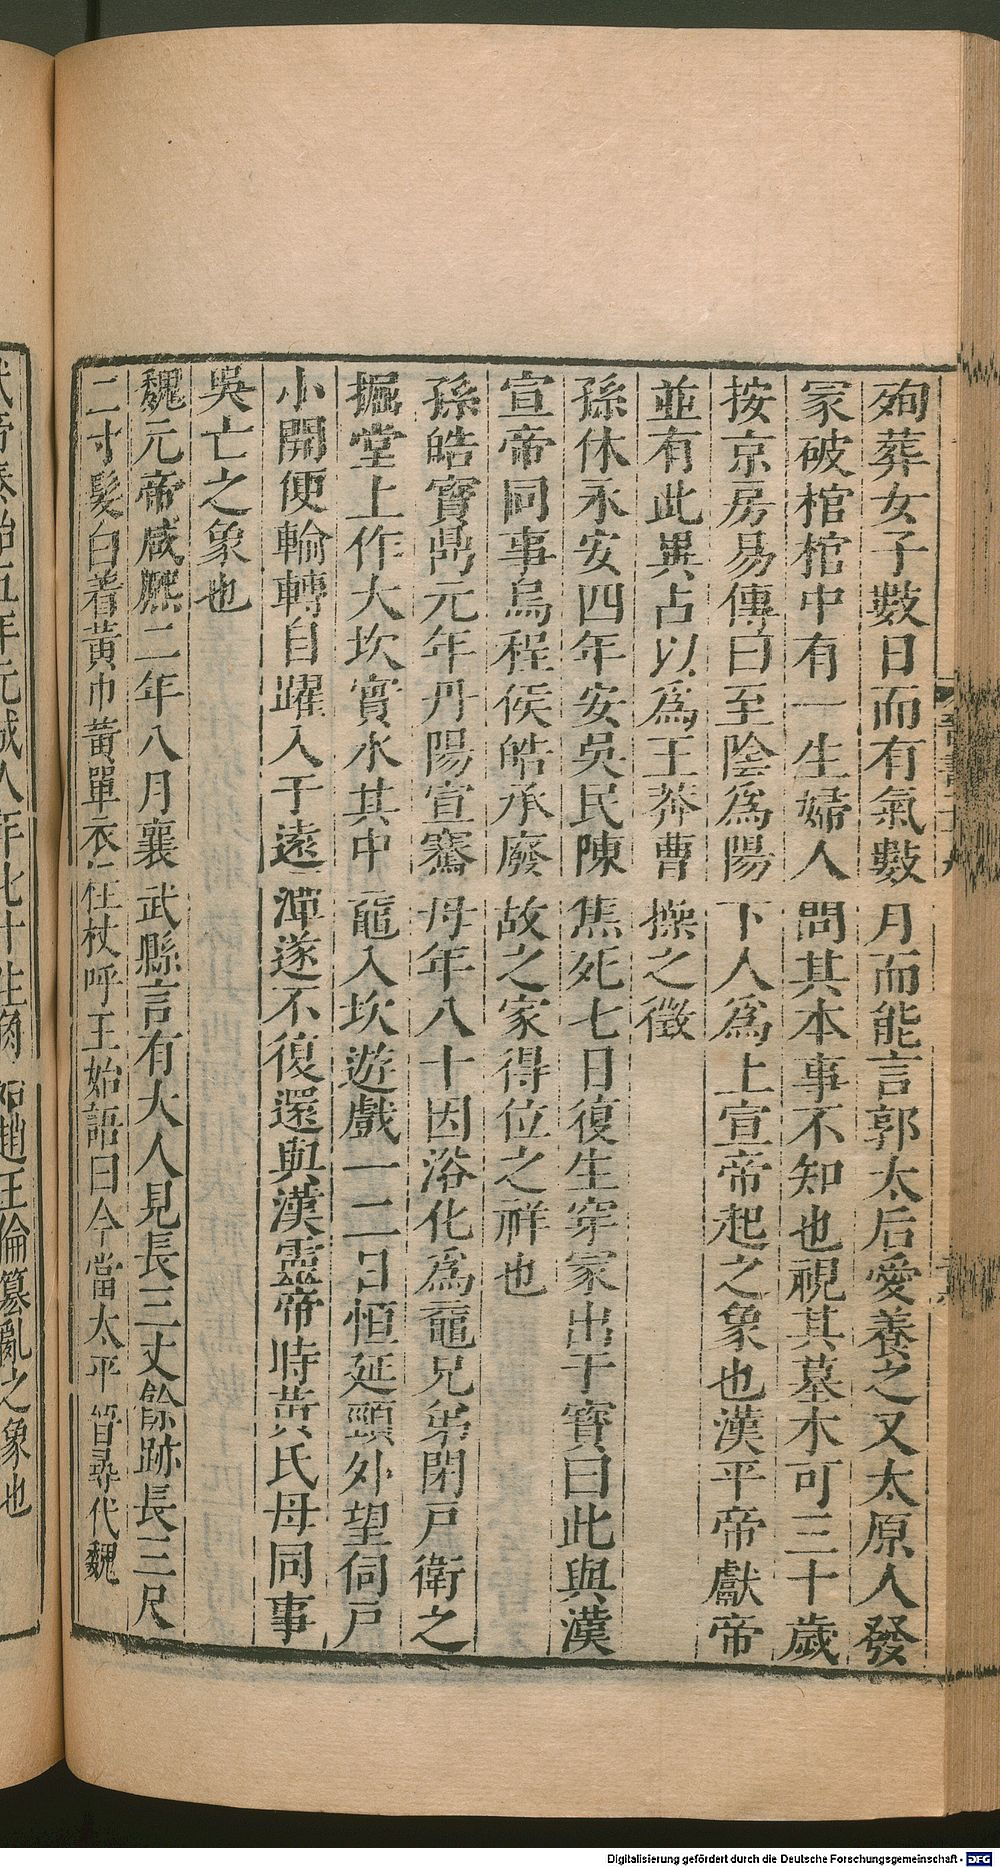 殉葬女子數日而有氣數月而能言郭太后愛養之又太原人發
冢破棺棺中有一生婦人問其本事不知也視其墓木可三十歲
按京房易傳曰至陰為陽下人為上宣帝起之象也漢平帝獻帝
並有此異占以為王莽曹操之徵
孫休永安四年安吳民陳焦死七日復生穿冢出干寶曰此與漢
宣帝同事烏程侯皓承廢故之家得位之祥也
孫皓寶鼎元年丹陽宣騫母年八十因浴化為黿兄弟閉戶衛之
掘堂上作大坎實水其中黿入坎遊戲一二日恒延頸外望伺戶
小開便輪轉自躍入于遠潭遂不復還與漢靈帝時黃氏母同事
吳亡之象也
魏元帝咸熙二年八月襄武縣言有大人見長三丈餘跡長三尺
二寸髮白着黃巾黃單衣柱杖呼王始語曰今當太平晉尋代魏
武帝泰始五年元城人年七十生角 趙王倫篡亂之象也
晉書二十九
Digitalisierung gefördert durch die Deutsche Forschungsgemeinschaft - DFG